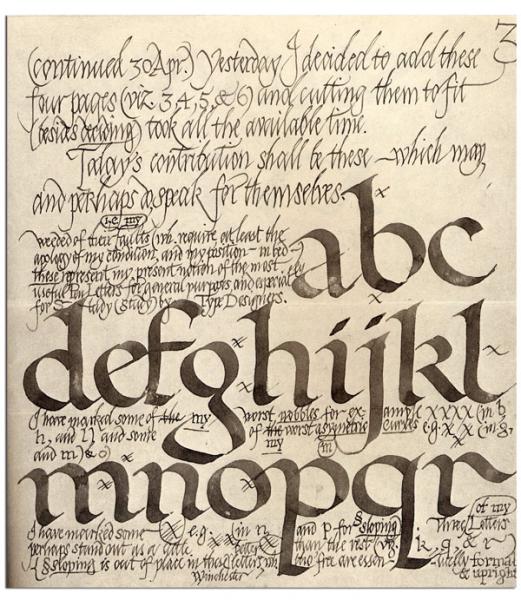 3
(continued 30 Apr.) Yesterday I decided to add these
four pages (viz. 3, 4, 5, & 6) and cutting them to fit
(besides deciding) took all the available time.
Today's contribution shall be these – which may,
and perhaps do, speak for themselves
i.e. my
abc
weeded of their faults (wh. require at least the
apology of my condition, and my position – in bed –
these represent my present notion of the most
useful Pen Letters for general purposes and especially
for Study (study) by Type Designers.
defghijkl
I have marked some of the my worst wobbles for example XXXX (in b
h, and l) and some of the worst asymmetric curves e.g. X X (in g,
and m) & o)
my
mnopqr
I have marked some e.g. (in n and p for § sloping) Three Letters of my
perhaps stand out as a little better than the rest (viz. k, q & r
(§ sloping is out of place in these letters wh. are essentially formal
Winchester & upright